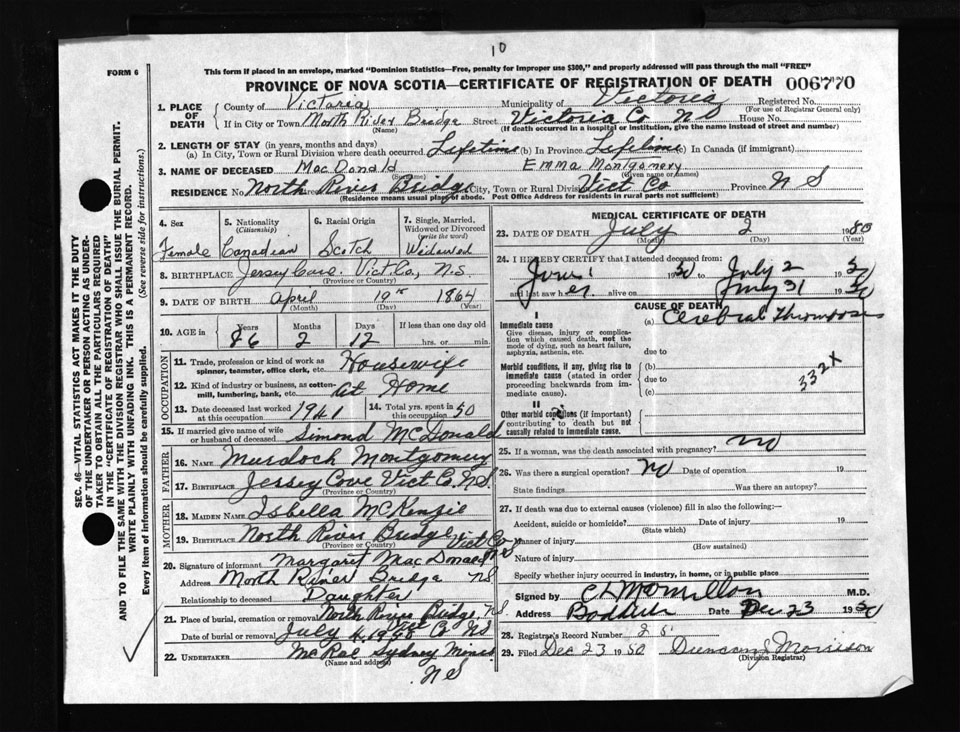 10
FORM 6
This form if placed in an envelope, marked "Dominion Statistics—Free, penalty for improper use $300," and properly addressed will pass through the mail "FREE"
PROVINCE OF NOVA SCOTIA—CERTIFICATE OF REGISTRATION OF DEATH 006770
1. PLACE OF DEATH
County of Victoria Municipality of Victoria Registered No.
(For use of Registrar General only)
If in City or Town North River Bridge Street Victoria Co NS House No.
(Name) (If death occurred in a hospital or institution, give the name instead of street and number)
2. LENGTH OF STAY (in years, months and days)
(a) In City, Town or Rural Division where death occurred. Lifetime (b) In Province. Lifetime (c) In Canada (if immigrant)
3. NAME OF DECEASED MacDonald Emma Montgomery
(Surname) (Given name or names)
RESIDENCE No. North River Bridge City, Town or Rural Division Vict Co Province N S
(Residence means usual place of abode. Post Office Address for residents in rural parts not sufficient)
4. Sex
Female
5. Nationality
(Citizenship)
Canadian
6. Racial Origin
Scotch
7. Single, Married, Widowed or Divorced
(write the word)
Widowed
8. BIRTHPLACE Jersey Cove. Vict Co., N.S.
(Province or Country)
9. DATE OF BIRTH April 19th 1864
(Month) (Day) (Year)
10. AGE in
Years 86 Months 2 Days 12 If less than one day old
hrs. or min.
OCCUPATION
11. Trade, profession or kind of work as spinner, teamster, office clerk, etc. Housewife
12. Kind of industry or business, as cotton-mill, lumbering, bank, etc. At Home
13. Date deceased last worked at this occupation 1941
14. Total yrs. spent in this occupation 50
15. If married give name of wife or husband of deceased Simond McDonald
FATHER
16. NAME Murdoch Montgomery
17. BIRTHPLACE Jersey Cove Vict Co. NS
(Province or Country)
MOTHER
18. MAIDEN NAME Isbella McKenzie
19. BIRTHPLACE North River Bridge Vict Co NS
(Province or Country)
20. Signature of informant Margaret MacDonald
Address North River Bridge NS
Relationship to deceased Daughter
21. Place of burial, cremation or removal North River Bridge, N.S.
Date of burial or removal July 4, Co NS
22. UNDERTAKER McRae Sydney Mines
(Name and address)
N S
MEDICAL CERTIFICATE OF DEATH
23. DATE OF DEATH July 2 19
(Month) (Day) (Year)
24. I HEREBY CERTIFY that I attended deceased from:
June 1 1950 to July 2 1950
and last saw her alive on 31 1950
CAUSE OF DEATH
I
Immediate cause
Give disease, injury or complication which caused death, not the mode of dying, such as heart failure, asphyxia, asthenia, etc.
(a) Cerebral Thrombosis
due to
Morbid conditions, if any, giving rise to immediate cause (stated in order proceeding backwards from immediate cause).
(b)
due to
(c)
332X
II
Other morbid conditions (if important) contributing to death but not causally related to immediate cause.
25. If a woman, was the death associated with pregnancy? no
26. Was there a surgical operation? no Date of operation 19
State findings Was there an autopsy?
27. If death was due to external causes (violence) fill in also the following:—
Accident, suicide or homicide? Date of injury 19
(State which)
Manner of injury
(How sustained)
Nature of injury
Specify whether injury occurred in industry, in home, or in public place
Signed by M.D.
Address Baddeck Date Dec 23 1950
28. Registrar's Record Number 25
29. Filed Dec 23 1950 Duncan J Morrison
(Division Registrar)
SEC. 46—VITAL STATISTICS ACT MAKES IT THE DUTY
OF THE UNDERTAKER OR PERSON ACTING AS UNDER-
TAKER TO OBTAIN ALL THE PARTICULARS REQUIRED
IN THE "CERTIFICATE OF REGISTRATION OF DEATH"
AND TO FILE THE SAME WITH THE DIVISION REGISTRAR WHO SHALL ISSUE THE BURIAL PERMIT.
WRITE PLAINLY WITH UNFADING INK. THIS IS A PERMANENT RECORD.
Every item of information should be carefully supplied. (See reverse side for instructions.)